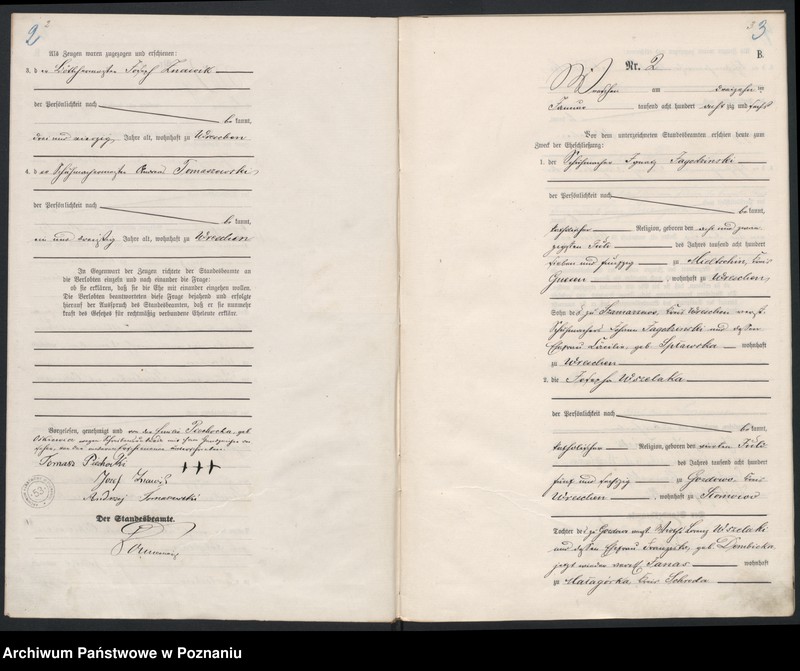 2
Als Zeugen waren zugezogen und erschienen:
3. der Böttchermeister Josef Znawik
der Persönlichkeit nach
bekannt,
drei und vierzig Jahre alt, wohnhaft zu Wreschen
4. der Schuhmachermeister Tomaszewski
der Persönlichkeit nach
bekannt,
ein und vierzig Jahre alt, wohnhaft zu Wreschen
In Gegenwart der Zeugen richtete der Standesbeamte an
die Verlobten einzeln und nach einander die Frage:
ob sie erklären, daß sie die Ehe mit einander eingehen wollen.
Die Verlobten beantworteten diese Frage bejahend und erfolgte
hierauf der Ausspruch des Standesbeamten, daß er sie nunmehr
kraft des Gesetzes für rechtmäßig verbundene Eheleute erkläre.
Vorgelesen, genehmigt und von der Piechocka, geb
wegen mit
Tomasz Piechocki +++
Josef
Andrzej Tomaszewski
Der Standesbeamte.
3
B.
Nr. 2
Wreschen am dreizehnten
Januar tausend acht hundert achtzig und sechs
Vor dem unterzeichneten Standesbeamten erschien heute zum
Zweck der Eheschließung:
1. der Schuhmacher Ignatz Jagodzinski
der Persönlichkeit nach
bekannt,
katholischer Religion, geboren den acht und zwan-
zigsten Juli des Jahres tausend acht hundert
sieben und fünfzig zu Mieltschin, Kreis
Gnesen, wohnhaft zu Wreschen,
Sohn des zu Kreis Wreschen verst.
Schuhmachers Johann Jagodzinski und dessen
Ehefrau Cäcilie, geb wohnhaft
zu Wreschen
2. die Josepha Wszelaka
der Persönlichkeit nach
bekannt,
katholischer Religion, geboren den Juli
des Jahres tausend acht hundert
fünf und sechzig zu Gozdowo, Kreis
Wreschen, wohnhaft zu
Tochter des zu Gozdowo verst. Wszelaki
und dessen Ehefrau Franziska, geb Dembicka
jetzt wieder verehl. Janas wohnhaft
zu Matagórka, Kreis Schroda
Archiwum Państwowe w Poznaniu